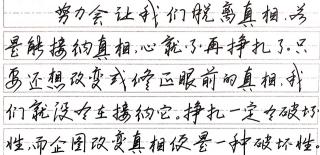 努力会让我们脱离真相.若
是能接纳真相,心就不再挣扎了.只
要还想改变或修正眼前的真相,我
们就没有在接纳它。挣扎一定有破坏
性,而企图改变真相便是一种破坏性。